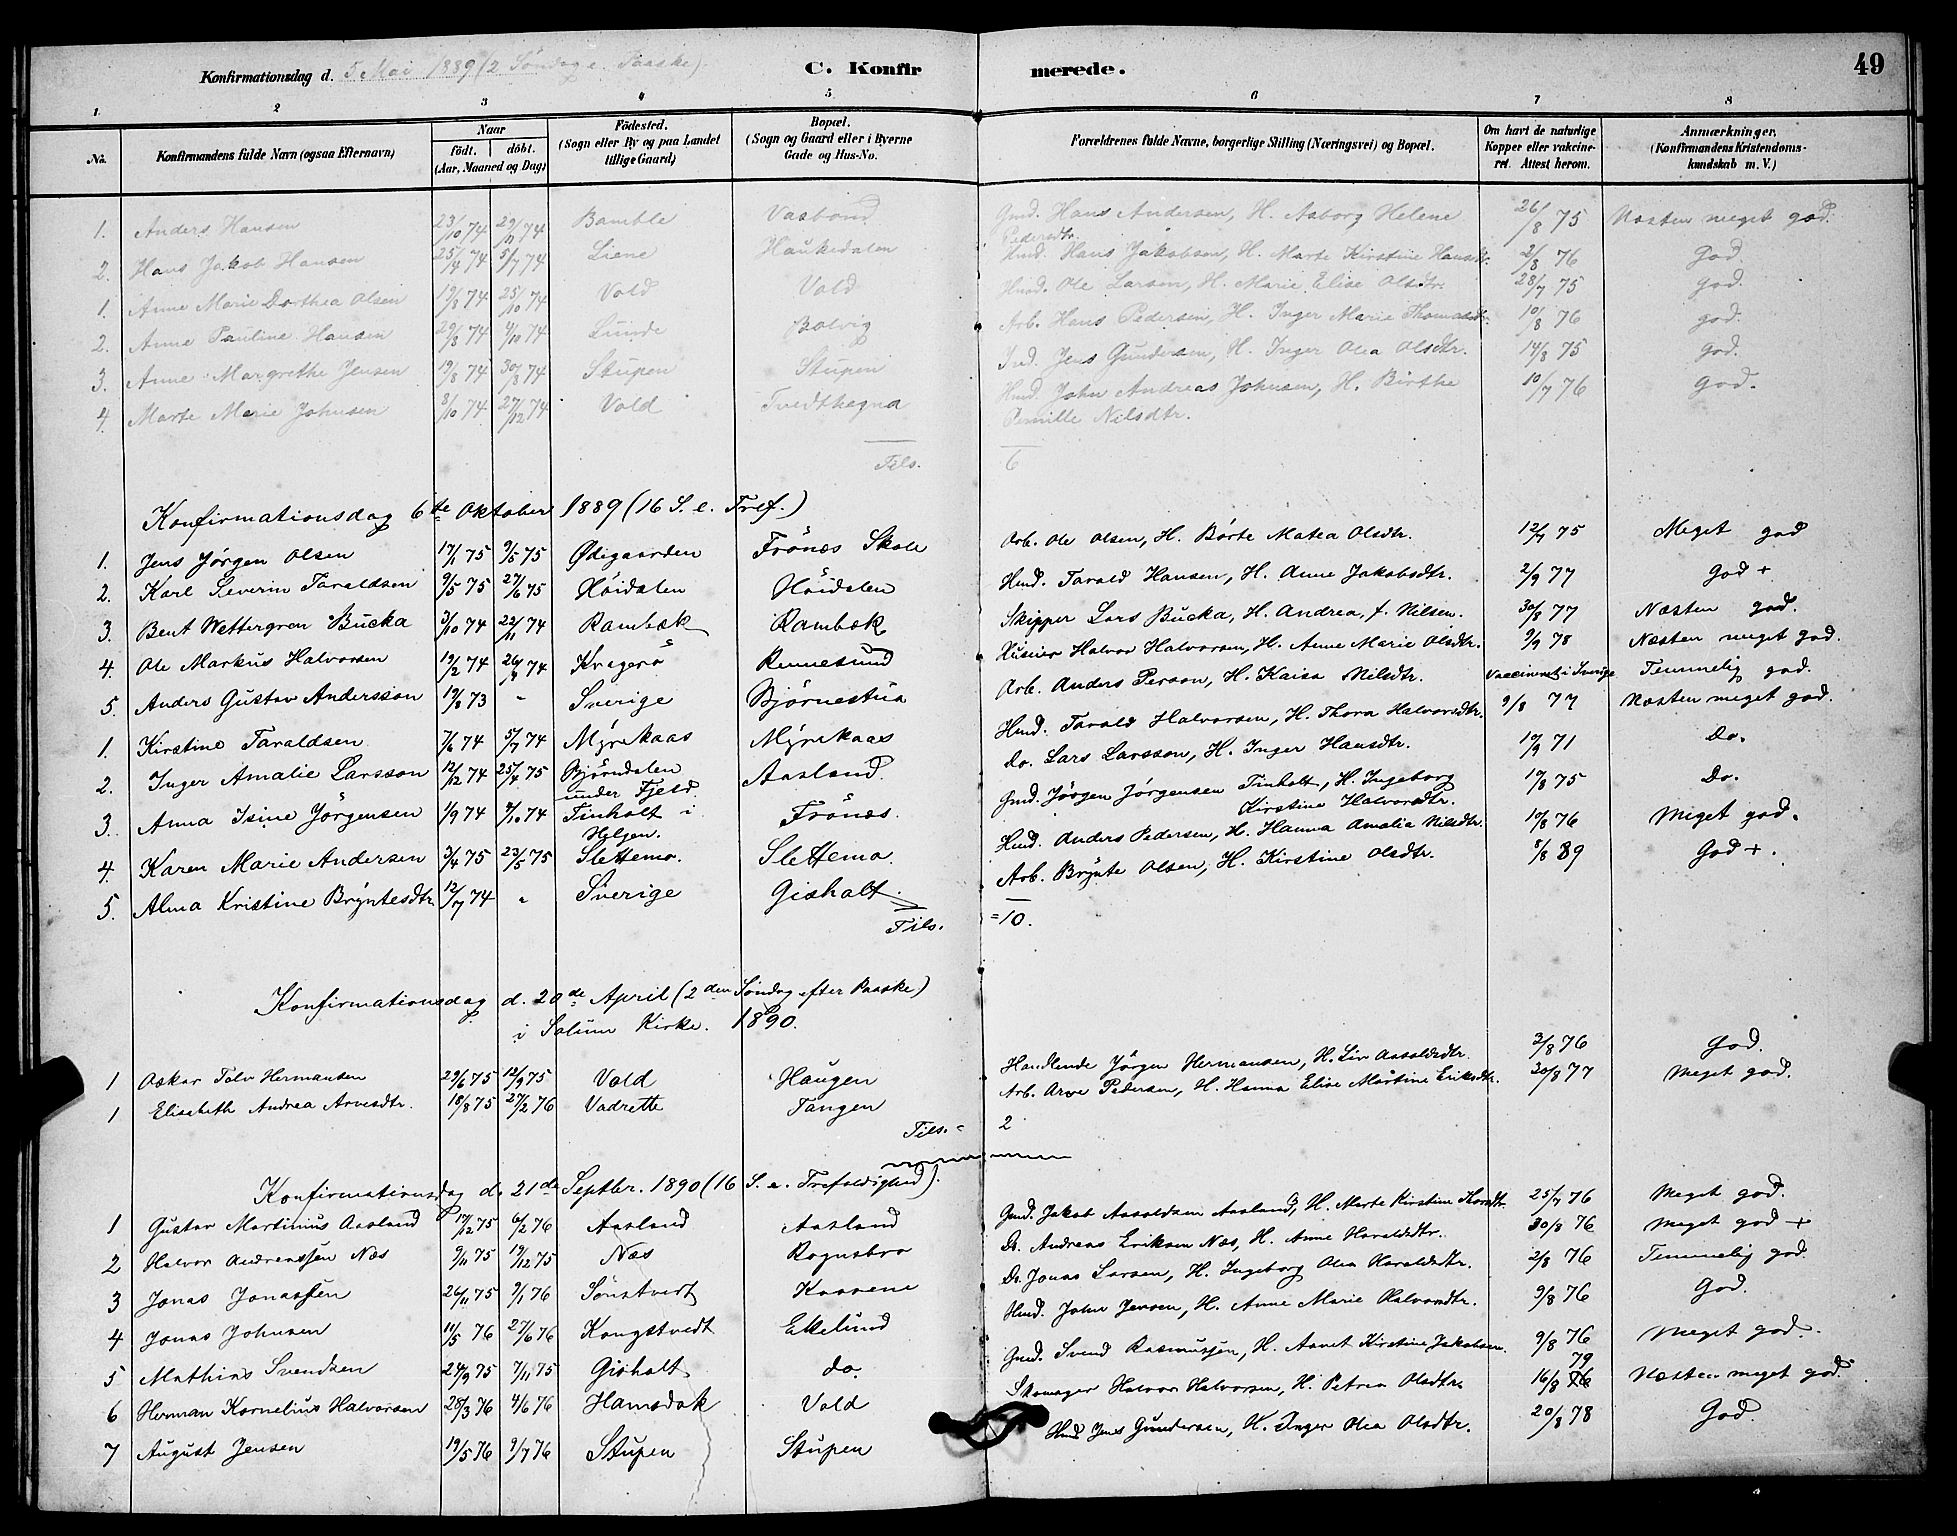 Konfirmationsdag d. 5 Mai 1889 (2 Söndag e. Paaske). C. Konfirmerede. 49
1. 2 3 4 5 6 7 8
No. Konfirmandens fulde Navn (ogsaa Efternavn) Naar födt. döbt. (Aar, Maaned og Dag) Födested. (Sogn eller By og paa Landet tillige Gaard) Bopæl. (Sogn og Gaard eller i Byerne Gade og Hus-No. Forældrenes fulde Navne, borgerlige Stilling (Næringsvei) og Bopæl. Om havt de naturlige Kopper eller vakcineret. Attest herom. Anmærkninger. (Konfirmandens Kristendomskundskab m. V.)
1. Anders Hansen 23/10 74 29/11 74 Bamble Vasbond Gmd. Hans Andersen, H. Asborg Helene Pedersdtr. 26/8 75 Næsten meget god.
2. Hans Jakob Hansen 25/4 74 5/7 74 Liene Haukedalen Hmd. Hans Jakobsen, H. Marte Kirstine Hansdtr. 2/8 76 God
1. Anne Marie Dorthea Olsen 19/8 74 25/10 74 Vold Vold Hmd. Ole Larsen, H. Marie Elise Olsdtr. 28/7 75 god.
2. Anne Pauline Hansen 29/8 74 4/10 74 Lunde Bolvig Arb. Hans Pedersen, H. Inger Marie Thomasdtr. 10/8 76 god.
3. Anne Margrethe Jensen 19/8 74 30/8 74 Stupen Stupen Ind. Jens Gundersen, H. Inger Olea Olsdtr. 14/8 75 god.
4. Marte Marie Johnsen 8/10 74 27/12 74 Vold Tvedthegna Hmd. John Andreas Johnsen, H. Birthe Pernille Nilsdtr. 10/7 76 god.
Tils. 6
Konfirmationsdag 6te Oktober 1889 (16 S. e. Tref.)
1. Jens Jörgen Olsen 17/1 75 9/5 75 Ødegaarden Frönæs Skole Arb. Ole Olsen, H. Børte Matea Olsdtr. 12/7 75 Meget god
2. Karl Severin Taraldsen 9/5 75 27/6 75 Höidalen Höidalen Hmd. Tarald Hansen, H. Anne Jakobsdtr. 2/9 77 God +
3. Bent Wettergren Bucka 3/10 74 22/11 74 Rambæk Rambæk Skipper Lars Bucka, H. Andrea, f. Nilsen. 30/8 77 Næsten god.
4. Ole Markus Halvorsen 19/2 74 26/4 74 Kragerö Rennesund Huseier Halvor Halvorsen, H. Anne Marie Olsdtr. 9/9 78 Næsten meget god.
5. Anders Gustav Andersson 19/8 73 - Sverige Bjørnestua Arb. Anders Person, H. Kaisa Nilsdtr. Vaccineret i Sverige Temmelig god.
1. Kirstine Taraldsen 7/6 74 5/7 74 Myrekaas Myrekaas Hmd. Tarald Halvorsen, H. Thora Halvorsdtr. 9/8 77 Næsten meget god.
2. Inger Amalie Larsson 12/12 74 25/4 75 Bjørndalen under Fjeld Aasland Do. Lars Larsson, H. Inger Hansdtr. 19/9 71 Do.
3. Anna Isine Jörgensen 1/9 74 4/10 74 Finholt i Helgen. Frönæs. Gmd. Jörgen Jörgensen Finholt, H. Ingeborg Kirstine Halvorsdtr. 19/8 75 Do.
4. Karen Marie Andersen 3/4 75 23/5 75 Slettemo. Slettemo. Hmd. Anders Pedersen, H. Hanna Amalia Nilsdtr. 10/8 76 Meget god.
5. Alma Kristine Bryntesdtr. 12/7 74 - Sverige Gisholt Arb. Brynte Olsen, H. Kirstine Olsdtr. 8/8 89 God +.
Tils. = 10.
Konfirmationsdag d. 20de April (2den Söndag efter Paaske)
i Solum Kirke. 1890.
1 Oskar Talv Hermansen 29/6 75 12/9 75 Vold Haugen Handlende Jörgen Hermansen, H. Liv Aasoldsdtr. 3/8 76 God.
1 Elisabeth Andrea Arvesdtr. 18/8 75 27/2 76 Vadrette Tangen Arb. Arve Pedersen, H. Hanna Elise Martine Eriksdtr. 20/8 77 Meget god.
Tils. = 2
Konfirmationsdag d. 21de Septbr. 1890 (16 S. e. Trefoldighed).
1 Gustav Martinius Aasland 17/12 75 6/2 76 Aasland Aasland Gmd. Jakob Aasoldsen Aasland, H. Marte Kirstine 25/7 76 Meget god.
2 Halvor Andreassen Næs 9/11 75 19/12 75 Næs Rognsbro Do. Andreas Eriksen Næs, H. Anne Haraldsdtr. 30/8 76 Meget god +
3 Jonas Jonassen 26/11 75 9/1 76 Sønstvedt Kasene Do. Jonas Larsen, H. Ingeborg Olea Haraldsdtr. 2/8 76 Temmelig god.
4 Jonas Johnsen 11/5 76 27/6 76 Kongstvedt Ekelund Hmd. John Jensen, H. Anne Marie Halvorsdtr. 9/8 76 God.
5 Mathias Svendsen 24/9 75 7/11 75 Gisholt do. Gmd. Svend Rasmussen, H. Annet Kirstine Jakobsen. 9/8 76 Meget god.
6 Herman Kornelius Halvorsen 28/3 76 4/6 76 Hamsdok Vold Skomager Halvor Halvorsen, H. Petrea Olsdtr. 16/8 79 Næsten meget god.
7 August Jensen 19/5 76 9/7 76 Stupen Stupen Hmd. Jens Gundersen, H. Inger Olea Olsdtr. 20/8 78 God.